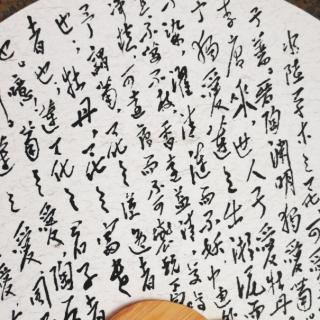 水陸草木之花可
蕃晉陶淵明獨愛菊
李唐來世人甚愛牡丹
予獨愛蓮之出淤泥而
染濯清漣而不妖中通
不蔓不枝香遠益清亭亭
淨植可遠觀而不可褻玩
予謂菊花之隱逸者
也牡丹花之富貴
者也蓮花之君子者
也噫菊之愛陶后